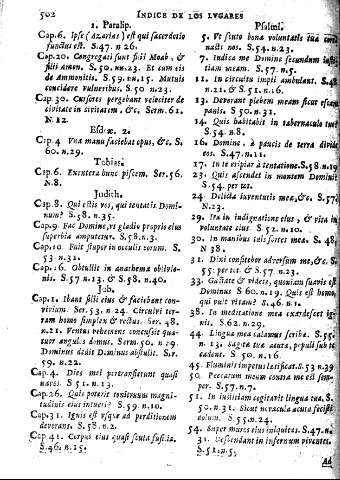 502 INDICE DE LOS LVGARES
1. Paralip.
Cap.6. Ipse (Azarias) est qui sacerdotio
functus est. S.47. n.26.
Cap.20. Congregati sunt filii Moab, &
filii Amon. S. 50. nu.23. Et cum eis
de Ammonitis. S.59. n.15. Mutuis
concidere vulneribus. S.50 n.23.
Cap.30. Cursores pergebant velociter de
civitate in civitatem, &c. Serm.61.
N.12.
Esdræ. 2.
Cap.4 Vna manu faciebat opus, &c. S.
60. n.29.
Tobias.
Cap.6. Exentera hunc piscem. Ser.56.
N.8.
Judith.
Cap.8. Qui estis vos, qui tentatis Domi-
num? S.58. n.35.
Cap.9 Fac Domine, vt gladio proprio eius
superbia amputetur. S.58.n.3.
Cap.10. Fuit stupor in oculis eorum. S.
53. n.31.
Cap.16. Obtulit in anathema oblivio-
nis. S.57 n.13. & S.58. n.40.
Job.
Cap.1. Ibant filii eius & faciebant con-
vivium. Ser.53. n.24. Circuivi ter-
ram homo simplex & rectus. Ser.48.
n.21. Ventus vehemens concussit qua-
tuor angulos domus. Serm.50. n.29.
Dominus dedit Dominus abstulit. Ser.
59. n.22.
Cap.4. Dies mei pertransierunt quasi
naves. S 51. n.13.
Cap.26. Quis poterit tonitruum magni-
tudinis eius intueri? S.59. n.10.
Cap.31. Ignis est vsque ad perditionem
devorans. S.58. n.2.
Cap 41. Corpus eius quasi scuta fusilia.
S.46. n.15.
Psalmi.
5. Vt scuto bona voluntatis tuæ coro-
nasti nos. S.54. n.23.
7. Iudica me Domine secundum iusti-
tiam meam. S.57. n.5.
11. In circuitu impii ambulant. S.48
n.21. & S.51. n.16.
13. Devorant plebem meam sicut escam
panis. S 50. n.31.
14. Quis habitabit in tabernaculo tuo?
S.54. n.8.
16. Domine, à paucis de terra divide
eos. S.47. n.11.
17. In te eripiar à tentatione. S.58 n.19
23. Quis ascendet in montem Domini?
S.54. per tot.
24 Delicta iuventutis meæ, &c. S.57
N.23.
29. Ira in indignatione eius, & vita in
voluntate eius S.52. n.10.
30. In manibus tuis sortes meæ. S. 48.
N 58.
31. Dixi confitebor adversum me, &c. S.
55. per tot. & S.57. n.23.
33. Gustate & videte, quoniam suavis est
Dominus S.60. n.19. Quis est homo,
qui vult vitam? S.46. n.1.
38. In meditatione mea exardescet ig-
nis. S.62. n.29.
44. Lingua mea calamus scribæ. S.55.
n.13. Sagittæ tuæ acutæ, populi sub te
cadent. S.50. n.16.
45 Fluminis impetus lætificat. S.53 n.39
50 Peccatum meum contra me est sem-
per. S.57. n.7.
51. In iustitiam cogitavit lingua tua. S.
50. n.31. Sicut novacula acuta fecisti
dolum. S.55. n.24.
54. Super muros eius iniquitas. S.47. n.
31. Descendant in infernum viventes.
S.51. n.5.
Ad